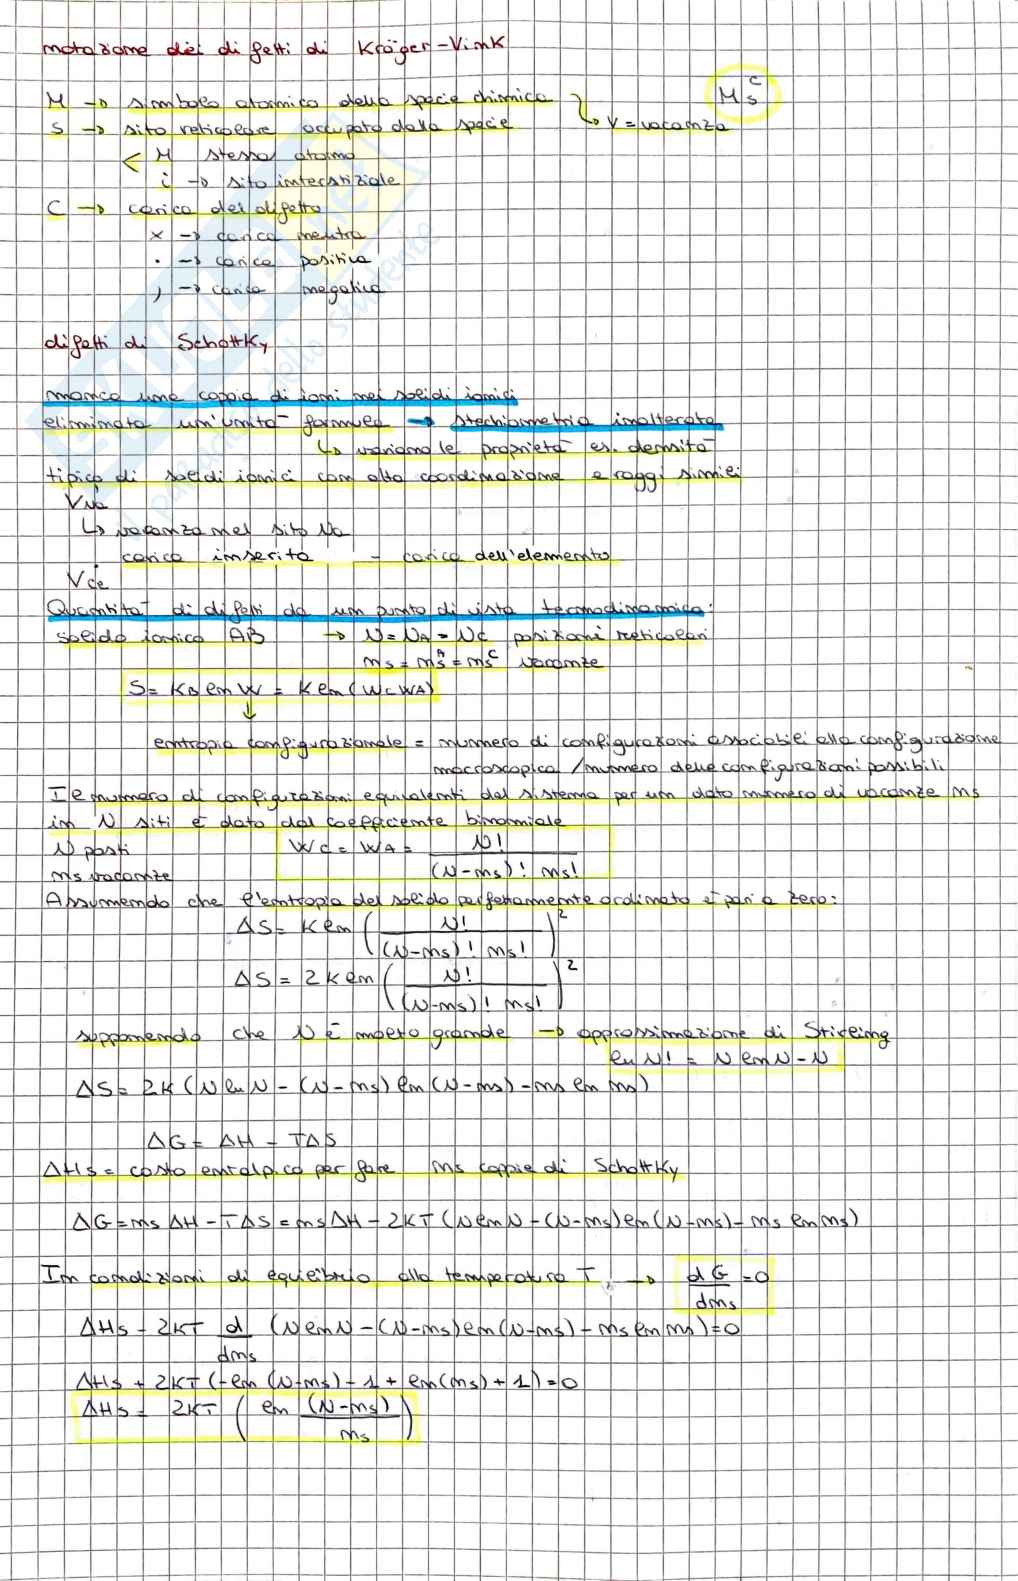 notazione dei difetti di Kröger-Vink
M → simbolo atomico della specie chimica
↳ V = vacanza
M_S^C
S → sito reticolare occupato dalla specie
< M stesso atomo
i → sito interstiziale
C → carica del difetto
× → carica neutra
· → carica positiva
, → carica negativa
difetti di Schottky
manca una coppia di ioni nei solidi ionici
eliminata un'unità formula → stechiometria inalterata
↳ variano le proprietà es. densità
tipico di solidi ionici con alta coordinazione e raggi simili
V_Na'
↳ vacanza nel sito Na
carica inserita - carica dell'elemento
V_Cl
Quantità di difetti da un punto di vista termodinamico:
solido ionico AB → N = N_A = N_C posizioni reticolari
n_s = n_s^A = n_s^C vacanze
S = K_B ln W = K ln (W_C W_A)
↓
entropia configurazionale = numero di configurazioni associabili alla configurazione
macroscopica / numero delle configurazioni possibili
Il numero di configurazioni equivalenti del sistema per un dato numero di vacanze n_s
in N siti è dato dal coefficiente binomiale
N posti
n_s vacanze
W_C = W_A = N! / (N-n_s)! n_s!
Assumendo che l'entropia del solido perfettamente ordinato è pari a zero:
ΔS = K ln ( N! / (N-n_s)! n_s! )^2
ΔS = 2K ln ( N! / (N-n_s)! n_s! )^2
supponendo che N è molto grande → approssimazione di Stirling
ln N! = N ln N - N
ΔS = 2K (N ln N - (N-n_s) ln (N-n_s) - n_s ln n_s)
ΔG = ΔH - TΔS
ΔH_s = costo entalpico per fare n_s coppie di Schottky
ΔG = n_s ΔH - TΔS = n_s ΔH - 2KT (N ln N - (N-n_s) ln (N-n_s) - n_s ln n_s)
In condizioni di equilibrio alla temperatura T → dG/dn_s = 0
ΔH_s - 2KT d/dn_s (N ln N - (N-n_s) ln (N-n_s) - n_s ln n_s) = 0
ΔH_s + 2KT (-ln (N-n_s) - 1 + ln (n_s) + 1) = 0
ΔH_s = 2KT ( ln (N-n_s) / n_s )